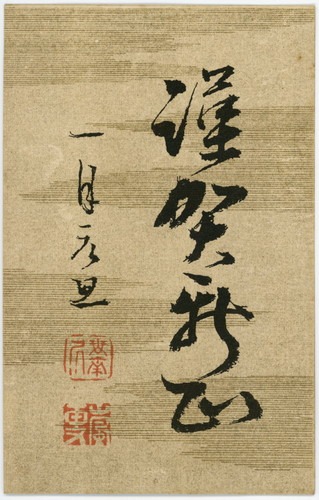 謹賀新正
一月元旦